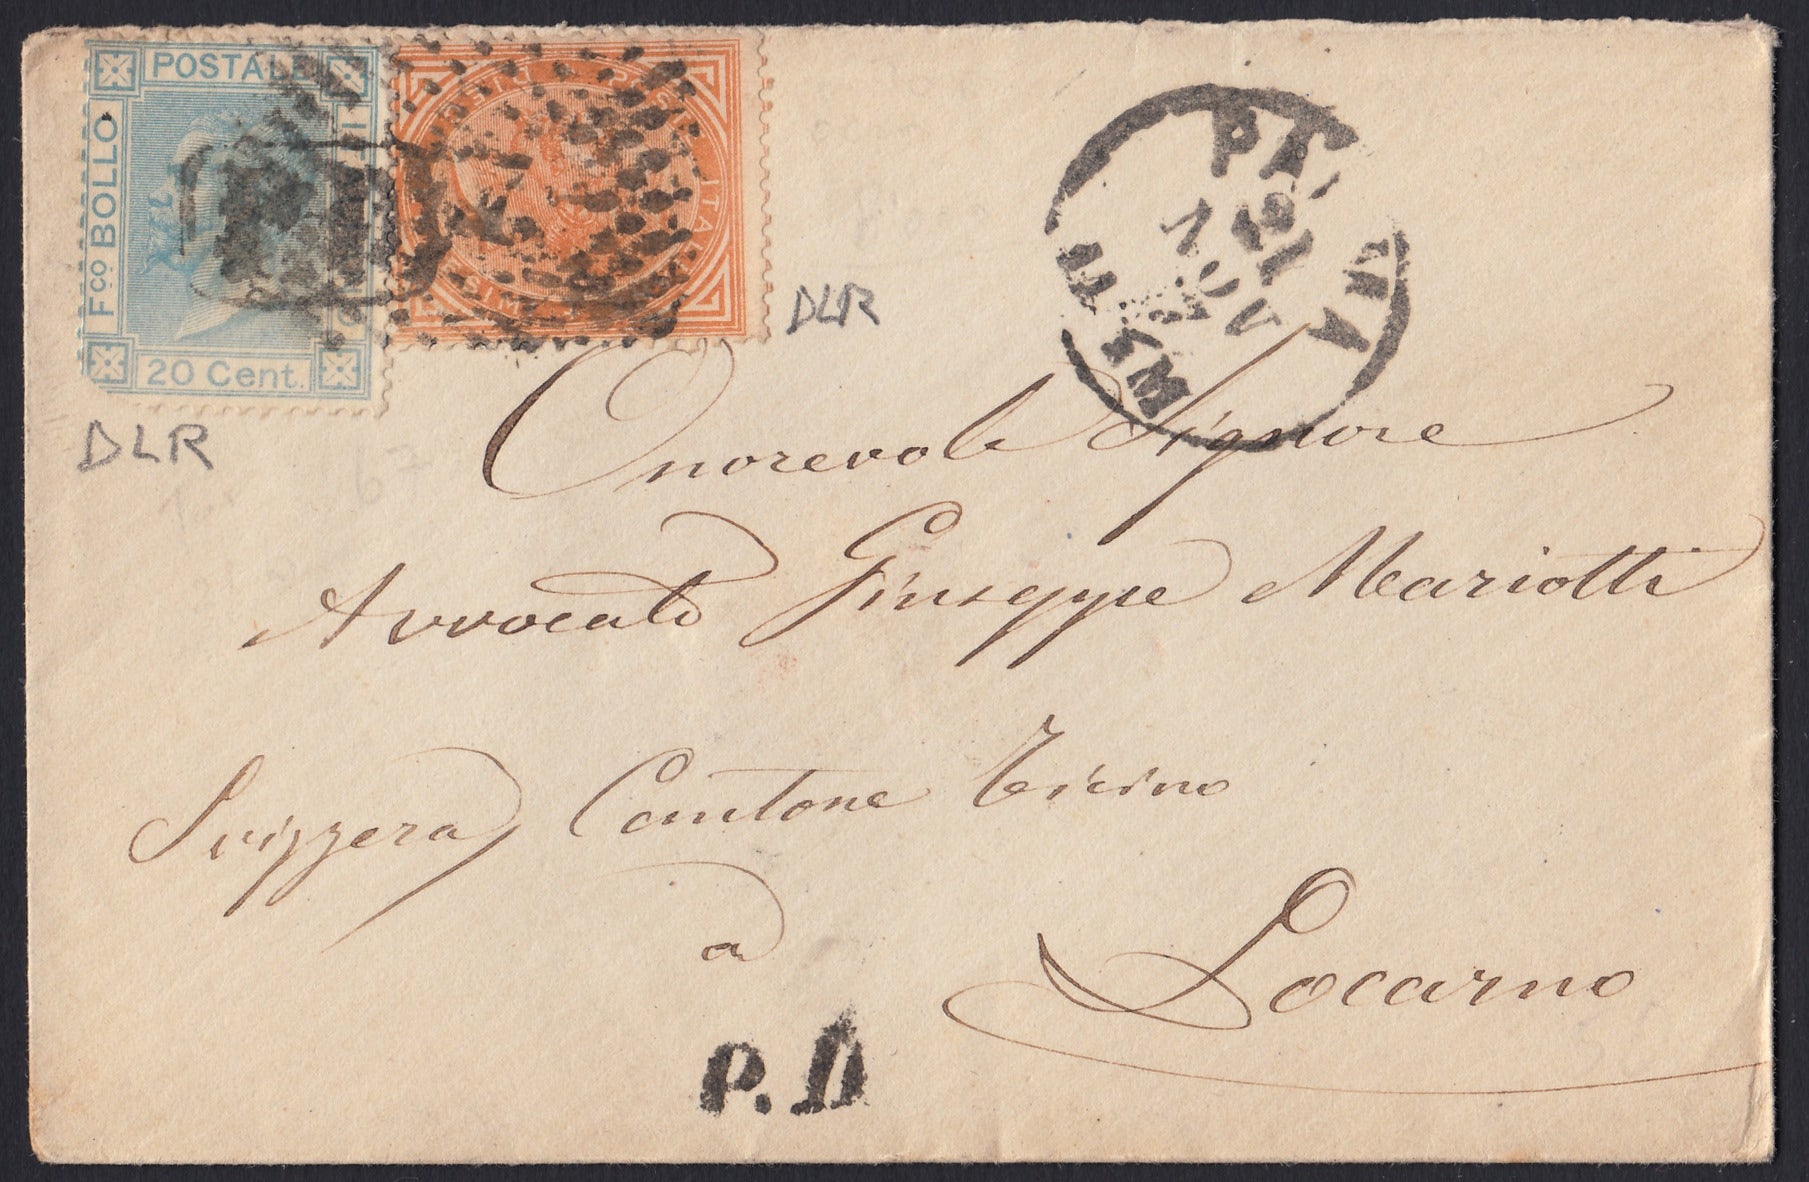 POSTALE
Fco BOLLO
20 Cent.
ITALI
DLR
DLR
NOV
Onorevole Signore
Avvocato Giuseppe Mariotti
Svizzera Cantone Ticino
a
Locarno
P.D